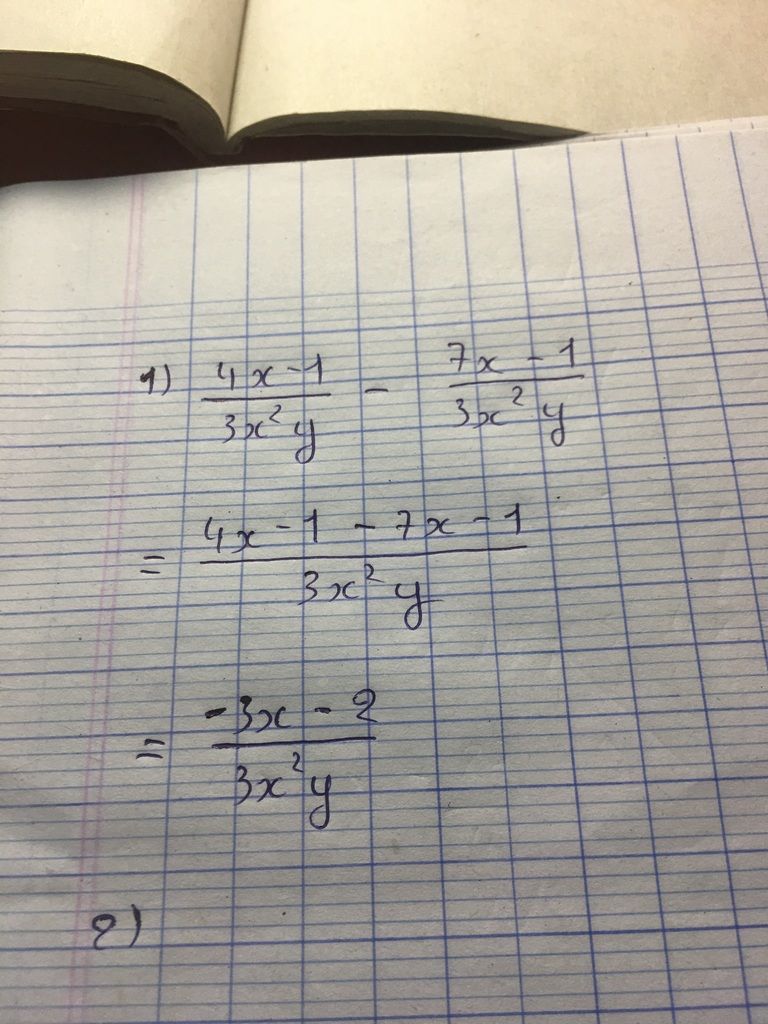 1) (4x-1)/(3x²y) - (7x-1)/(3x²y)
= (4x-1-7x-1)/(3x²y)
= (-3x-2)/(3x²y)
2)